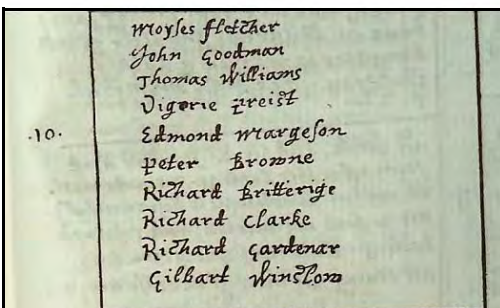 moyses fletcher
John Goodman
Thomas Williams
Digerie preist
.10. Edmond margeson
peter Browne
Richard Britterige
Richard Clarke
Richard Gardenar
Gilbart Winslow